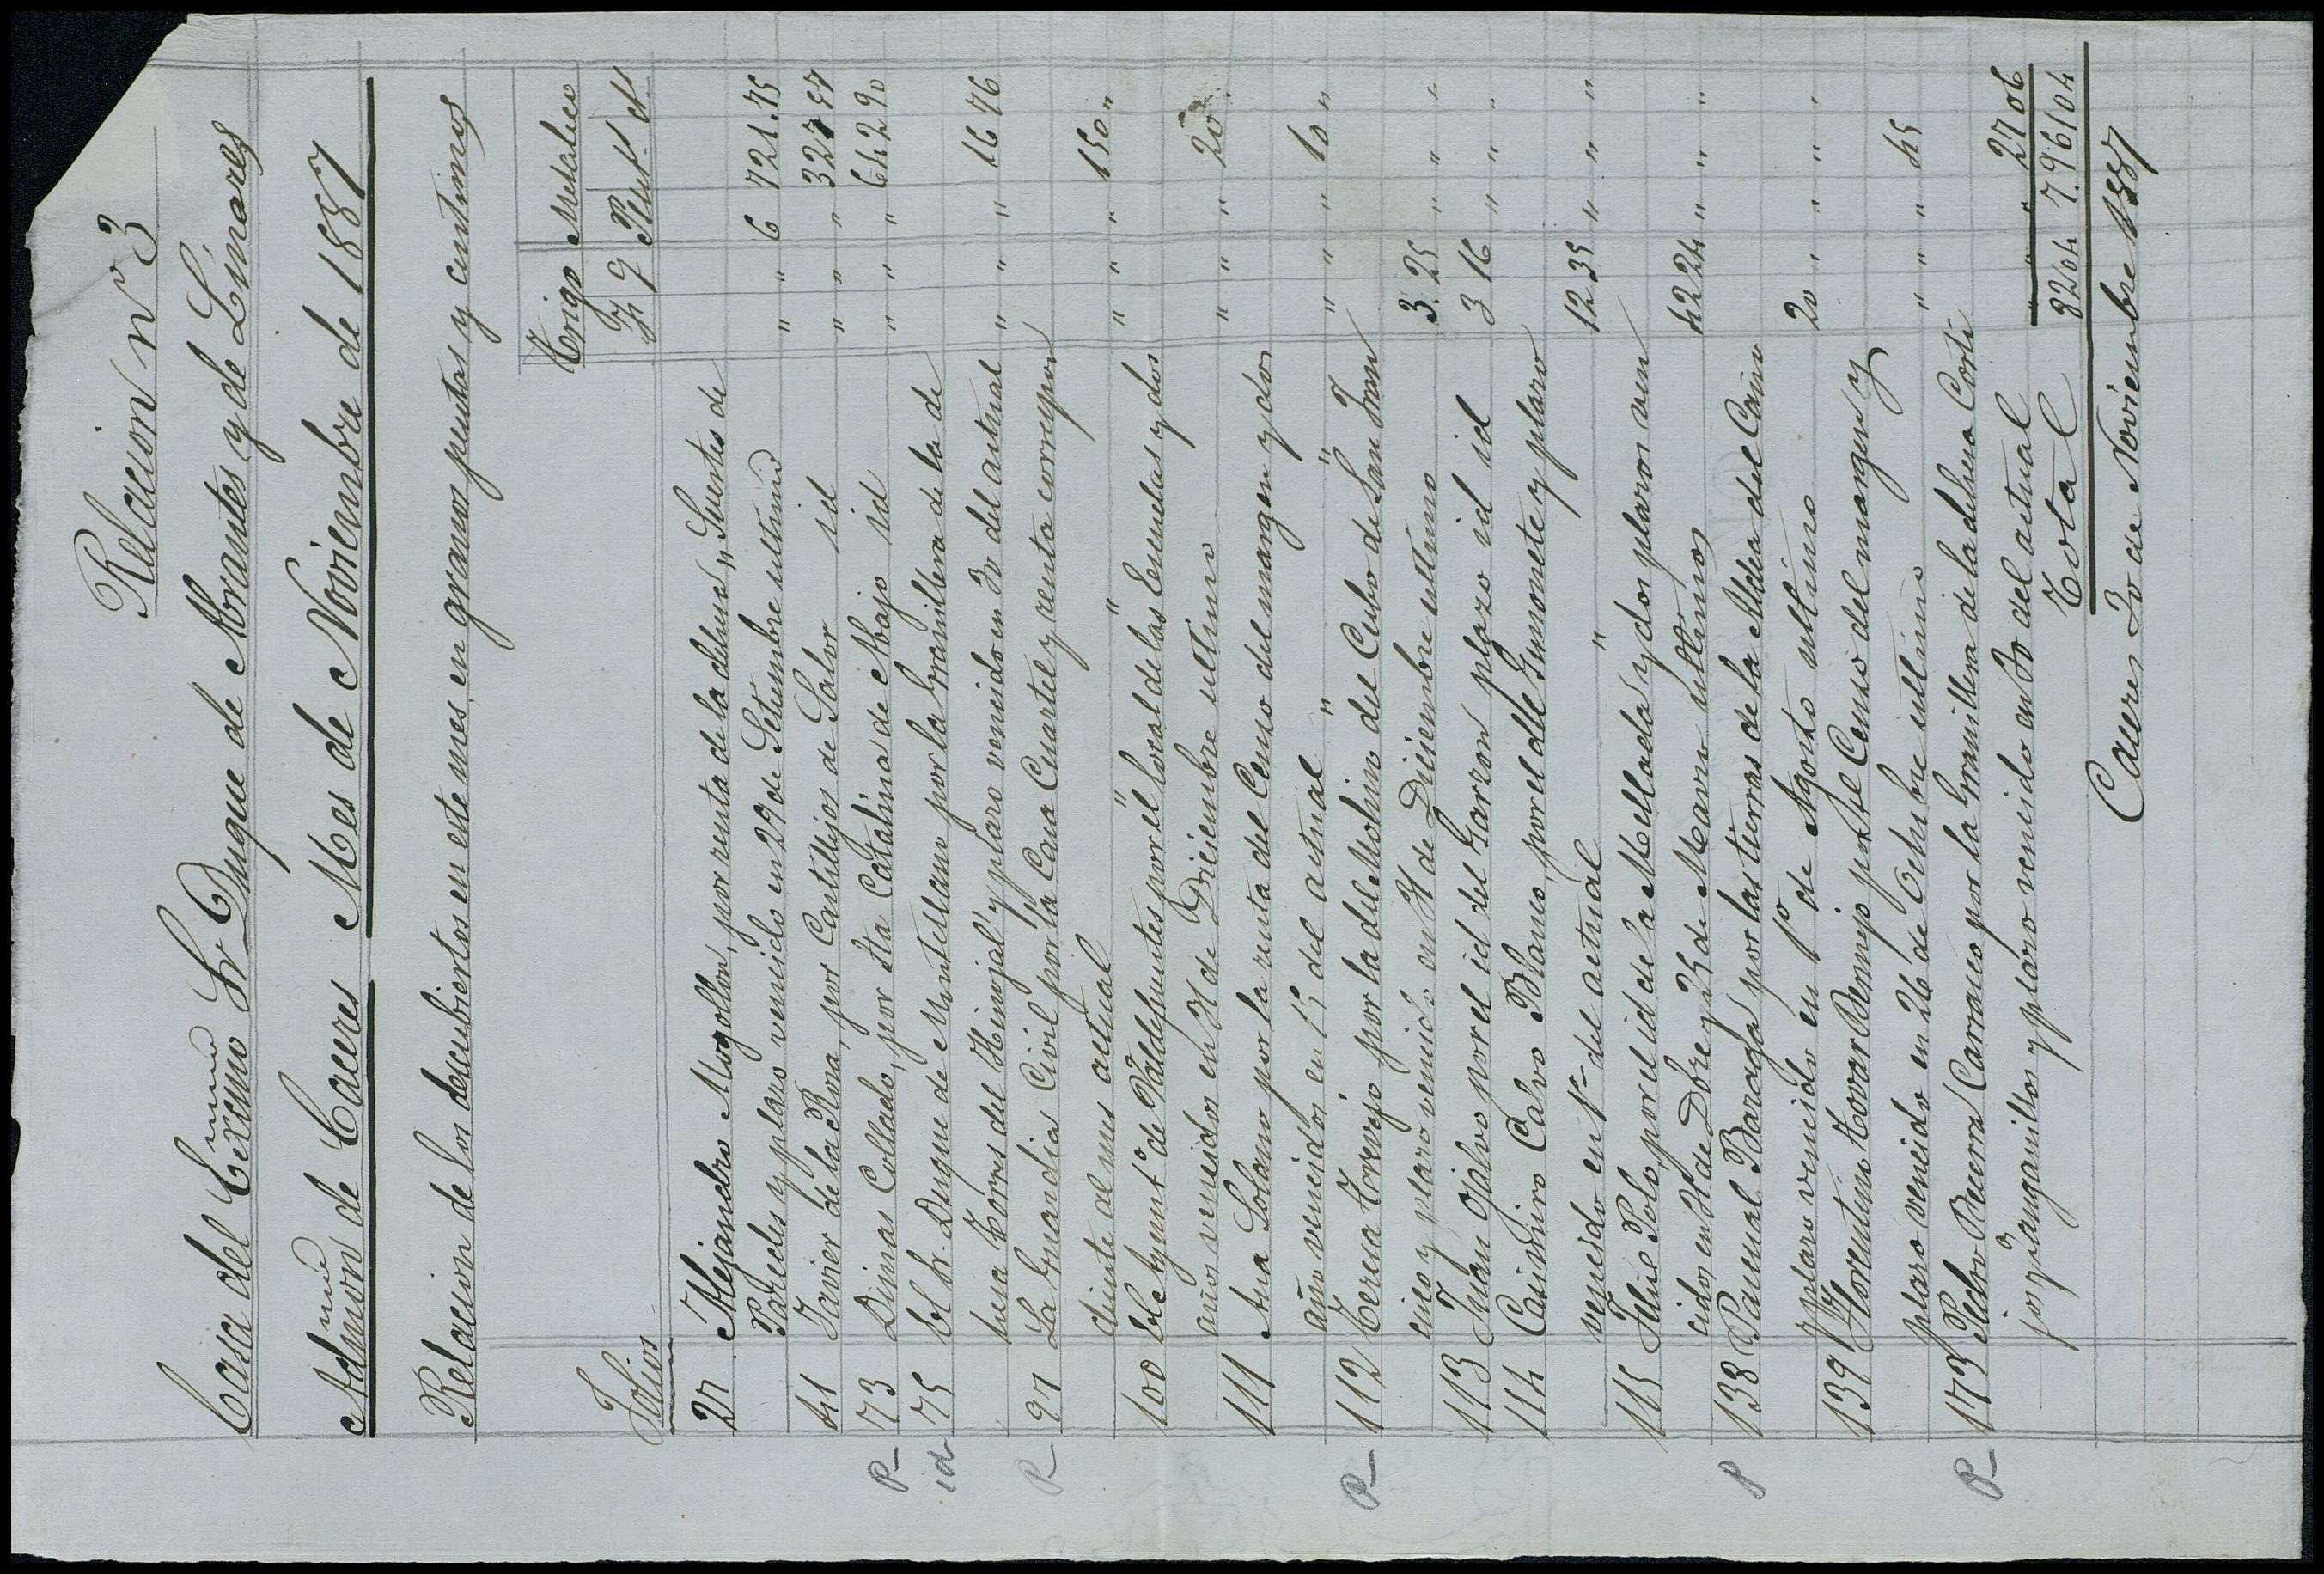 Relacion nº 3
Casa del Exmo Sr Duque de Abrantes y de Linares
Admon de Caceres Mes de Noviembre de 1887
Relacion de los descubiertos en este mes, en granos pesetas y centimos
Trigo Metalico
Folios F q Peset. Ct.
27 Alejandro Mogollon, por renta de la dehesa "Suertes de
Paredes y plazo vencido en 29 de Setiembre ultimo " " 6 721.75
41 Javier de la Rosa, por Castillejos de Salor id " " " 327 57
P 73 Dimas Collado, por Sta Catalina de Abajo id " " " 642 90
id 75 El Sr. Duque de Montellano por la Granillera de la de
hesa Torres del Hinojal y plazo vencido en 30 del actual " " " 16 76
P 97 La Guardia Civil por la Casa Cuartel y renta correspon
diente al mes actual " " " " 150 "
100 El Ayuntº de Valdefuentes por el local de las Escuelas y dos
años vencidos en 31 de Diciembre ultimo " " " 20
111 Ana Solano por la renta del Censo del margen y dos
año vencidos en 15 del actual " " " " " 10 "
P 112 Teresa Torvejo por la del Molino del Cubo de San Fran
cisco y plazo vencido en 31 de Diciembre ultimo 3. 25 " " "
113 Juan Ojalvo por el id del Garzon plazo id id 3 16 " " "
114 Casimiro Calvo Blanco, por el dlle Gumonete y plazo
vencido en 1º del actual " 12 35 " " "
115 Felix Polo, por el id de la Mellada y dos plazos ven
cidos en 31 de Dbre y 25 de Marzo ultimos 42 24 " " "
P 138 Pascual Baraga por las tierras de la Aldea del Cano
y plazo vencido en 1º de Agosto ultimo 20 " " " "
139 Florentino Tovar Bermejo por el Censo del margen y
plazo vencido en 26 de Octubre ultimo " " " 45
P 173 Pedro Becerra Carrasco por la Granillera de la dehesa Corti
jo Zanganillos y plazo vencido en 30 del actual " " " 27 06
Total 82 04 7.961 04
Caceres 30 de Noviembre 1887